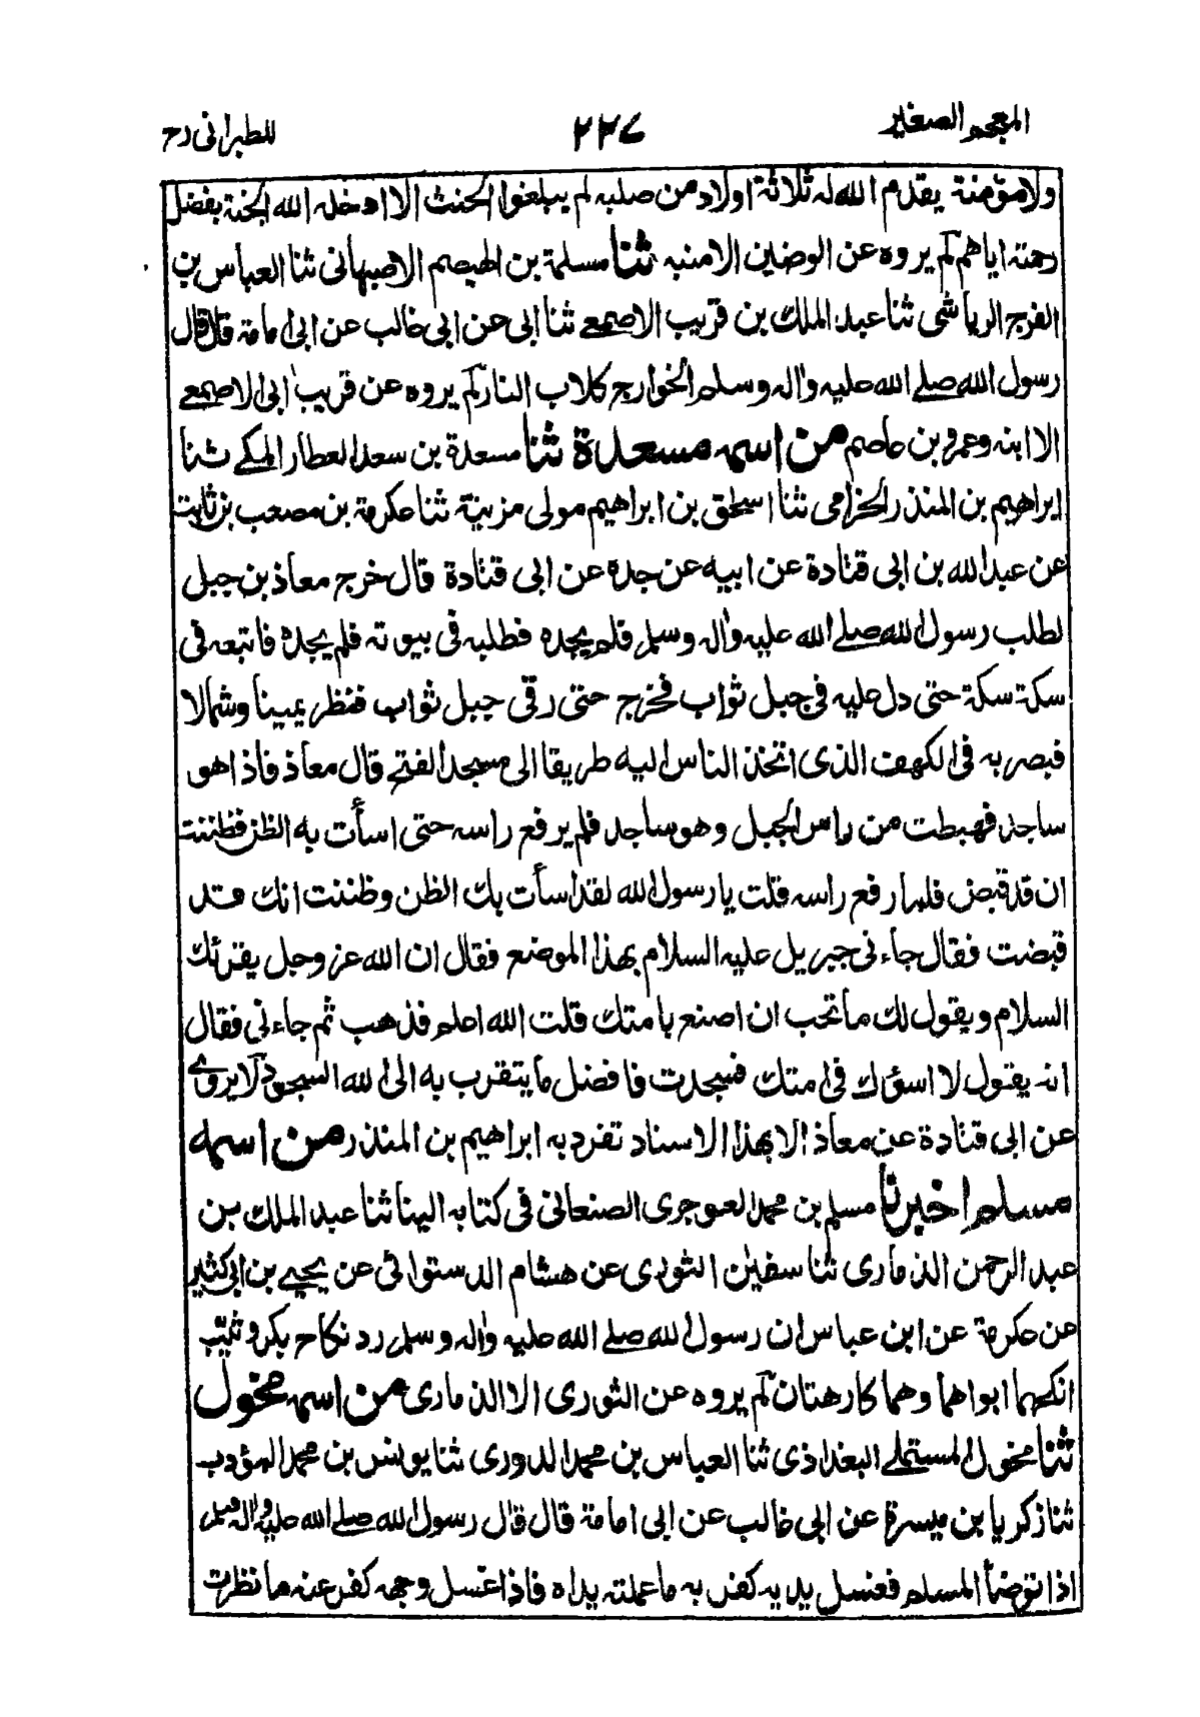 المعجم الصغير
٢٢٧
للطبرانى رح
ولا مؤمنة يقدم الله له ثلاثة اولاد من صلبه لم يبلغوا الحنث الا ادخله الله الجنة بفضل
رحمته اياهم لم يروه عن الوضين الا منبه ثنا مسلمة بن الهيصم الاصبهانى ثنا العباس بن
الفرج الرياشى ثنا عبد الملك بن قريب الاصمعى ثنا ابى عن ابى غالب عن ابى امامة قال قال
رسول الله صلى الله عليه واله وسلم الخوارج كلاب النار لم يروه عن قريب ابى الاصمعى
الا ابنه وعمرو بن عاصم من اسمه مسعدة ثنا مسعدة بن سعد العطار المكى ثنا
ابراهيم بن المنذر الحزامى ثنا اسحق بن ابراهيم مولى مزينة ثنا عكرمة بن مصعب بن ثابت
عن عبد الله بن ابى قتادة عن ابيه عن جده عن ابى قتادة قال خرج معاذ بن جبل
لطلب رسول الله صلى الله عليه واله وسلم فلم يجده فطلبه فى بيوته فلم يجده فاتبعه فى
سكة سكة حتى دل عليه فى جبل ثواب فخرج حتى رقى جبل ثواب فنظر يمينا وشمالا
فبصر به فى الكهف الذى اتخذ الناس اليه طريقا الى مسجد الفتح قال معاذ فاذا هو
ساجد فهبطت من راس الجبل وهو ساجد فلم يرفع راسه حتى اسأت به الظن فظننت
ان قد قبض فلما رفع راسه قلت يا رسول الله لقد اسأت بك الظن وظننت انك قد
قبضت فقال جاءنى جبريل عليه السلام بهذا الموضع فقال ان الله عز وجل يقرئك
السلام ويقول لك ما تحب ان اصنع بامتك قلت الله اعلم فذهب ثم جاءنى فقال
انه يقول لا اسؤك فى امتك فسجدت فافضل ما يتقرب به الى الله السجود لا يروى
عن ابى قتادة عن معاذ الا بهذا الاسناد تفرد به ابراهيم بن المنذر من اسمه
مسلم اخبرنا مسلم بن محمد العوجرى الصنعانى فى كتابه الينا ثنا عبد الملك بن
عبد الرحمن الذمارى ثنا سفين الثورى عن هشام الدستوائى عن يحيى بن ابى كثير
عن عكرمة عن ابن عباس ان رسول الله صلى الله عليه واله وسلم رد نكاح بكر وثيب
انكحهما ابواهما وهما كارهتان لم يروه عن الثورى الا الذمارى من اسمه مخول
ثنا مخول المستملى البغداذى ثنا العباس بن محمد الدورى ثنا يونس بن محمد المؤدب
ثنا زكريا بن ميسرة عن ابى غالب عن ابى امامة قال قال رسول الله صلى الله عليه واله وسلم
اذا توضأ المسلم فغسل يديه كفر به ما عملته يداه فاذا غسل وجهه كفر عنه ما نظرت